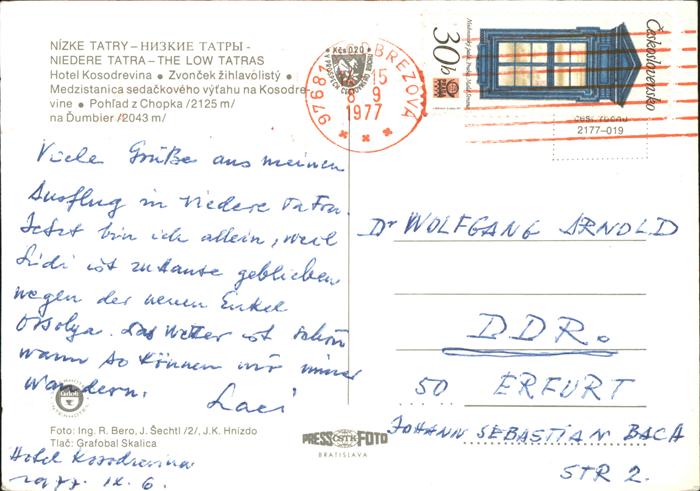 NÍZKE TATRY – НИЗКИЕ ТАТРЫ -
NIEDERE TATRA – THE LOW TATRAS
Hotel Kosodrevina ● Zvonček žihlavolistý ●
Medzistanica sedačkového výťahu na Kosodre-
vine ● Pohľad z Chopka /2125 m/
na Ďumbier /2043 m/
Viele Grüße aus meinen
Ausflug in Niedere Tatra.
Jetzt bin ich allein, weil
Lidi ist zuhause geblieben
wegen der neuen Enkel
Orsolya. Das Wetter ist schön
wann so können wir immer
wandern.
Laci
Foto: Ing. R. Bero, J. Šechtl /2/, J.K. Hnízdo
Tlač: Grafobal Skalica
Hotel Kosodrevina
1977. IX. 6.
Kčs 0.20
97681 BREZOVÁ
15
8 9
1977
30h
Československo
2177-019
Dr WOLFGANG ARNOLD
DDR.
50 ERFURT
JOHANN SEBASTIAN BACH
STR 2.
PRESS ČSTK FOTO
BRATISLAVA